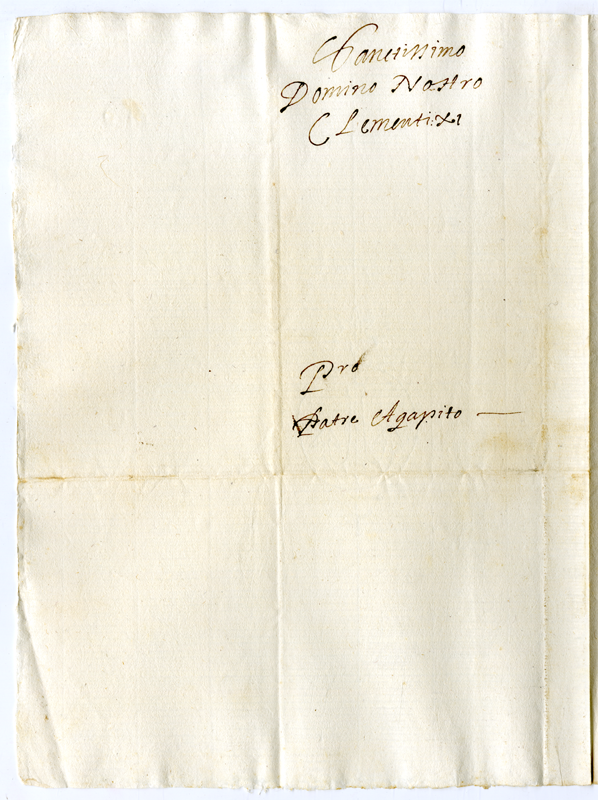 Sanctissimo
Domino Nostro
Clementi: XI
Pro
Patre Agapito —